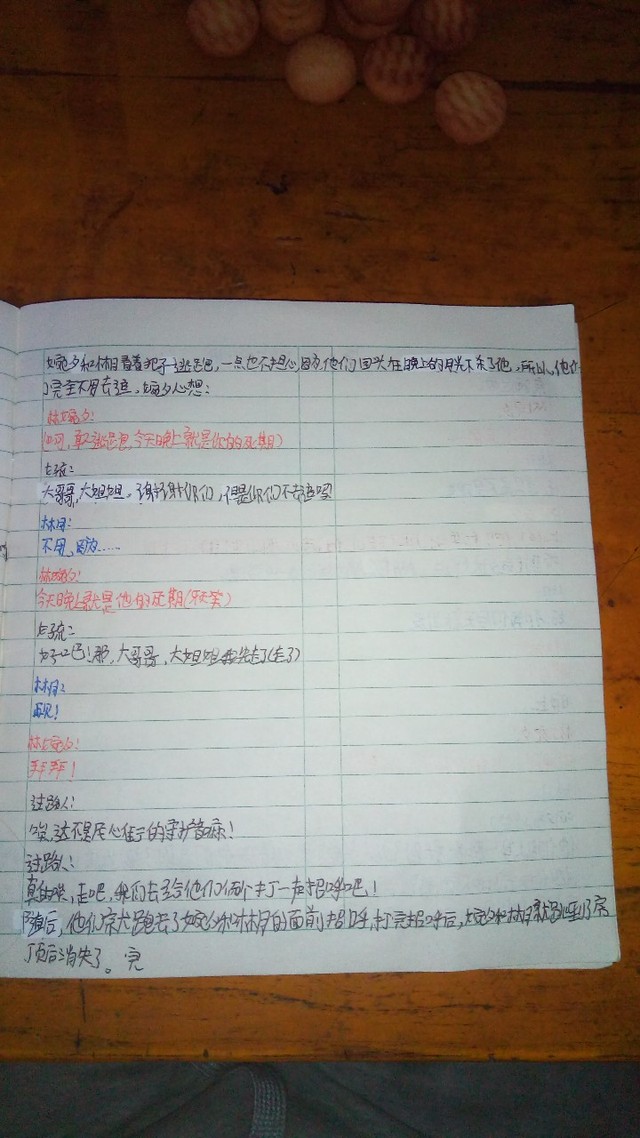 婉夕和林月看着犯子逃走，一点也不担心，因为，他们回头在晚上的月光下杀了他，所以，他们
完全不用去追，婉夕心想：
林婉夕：
今天晚上就是你的死期）
女孩：
大哥哥，大姐姐，谢谢你们，但是你们不去追吗
林月：
不用，因为……
林婉夕：
今天晚上就是他的死期（冷笑）
女孩：
好吧！那，大哥哥，大姐姐我先走了（走了）
林月：
再见！
林婉夕：
拜拜！
过路人：
这不是
过路人：
真的哎，走吧，我们去给他们两个打一声招呼吧！
随后，他们跑去了婉夕和林月的面前打招呼，打完招呼后，婉夕和林月就到了房
顶后消失了。完